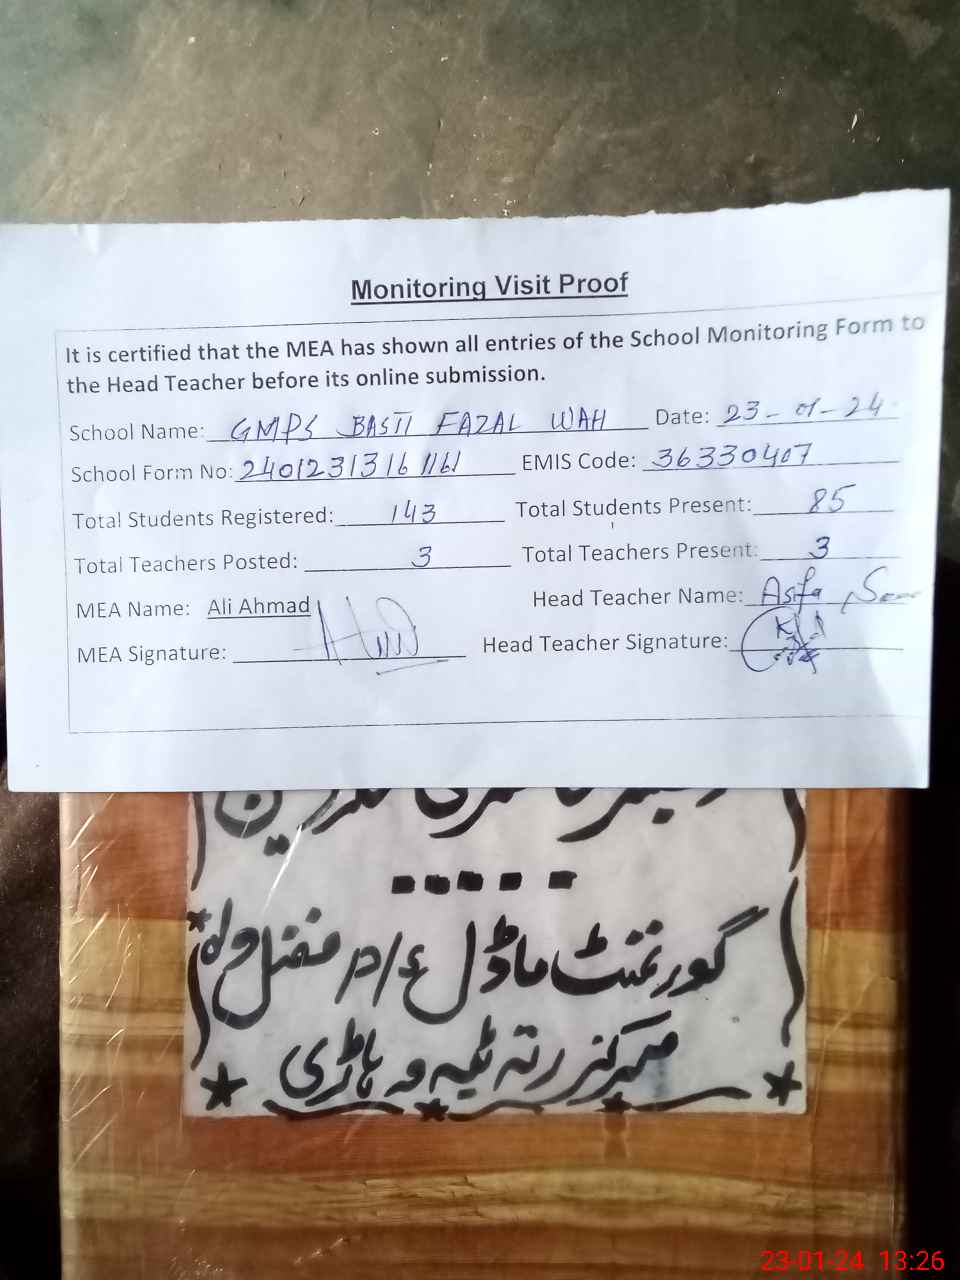 Monitoring Visit Proof
It is certified that the MEA has shown all entries of the School Monitoring Form to
the Head Teacher before its online submission.
School Name: GMPS BASTI FAZAL WAH Date: 23-01-24
School Form No: 2401231316 1161 EMIS Code: 36330407
Total Students Registered: 143 Total Students Present: 85
Total Teachers Posted: 3 Total Teachers Present: 3
MEA Name: Ali Ahmad Head Teacher Name: Asifa
MEA Signature: Head Teacher Signature:
گورنمنٹ ماڈل ع/م فضل واہ
مرکز رتہ ٹبہ وہاڑی
23-01-24 13:26